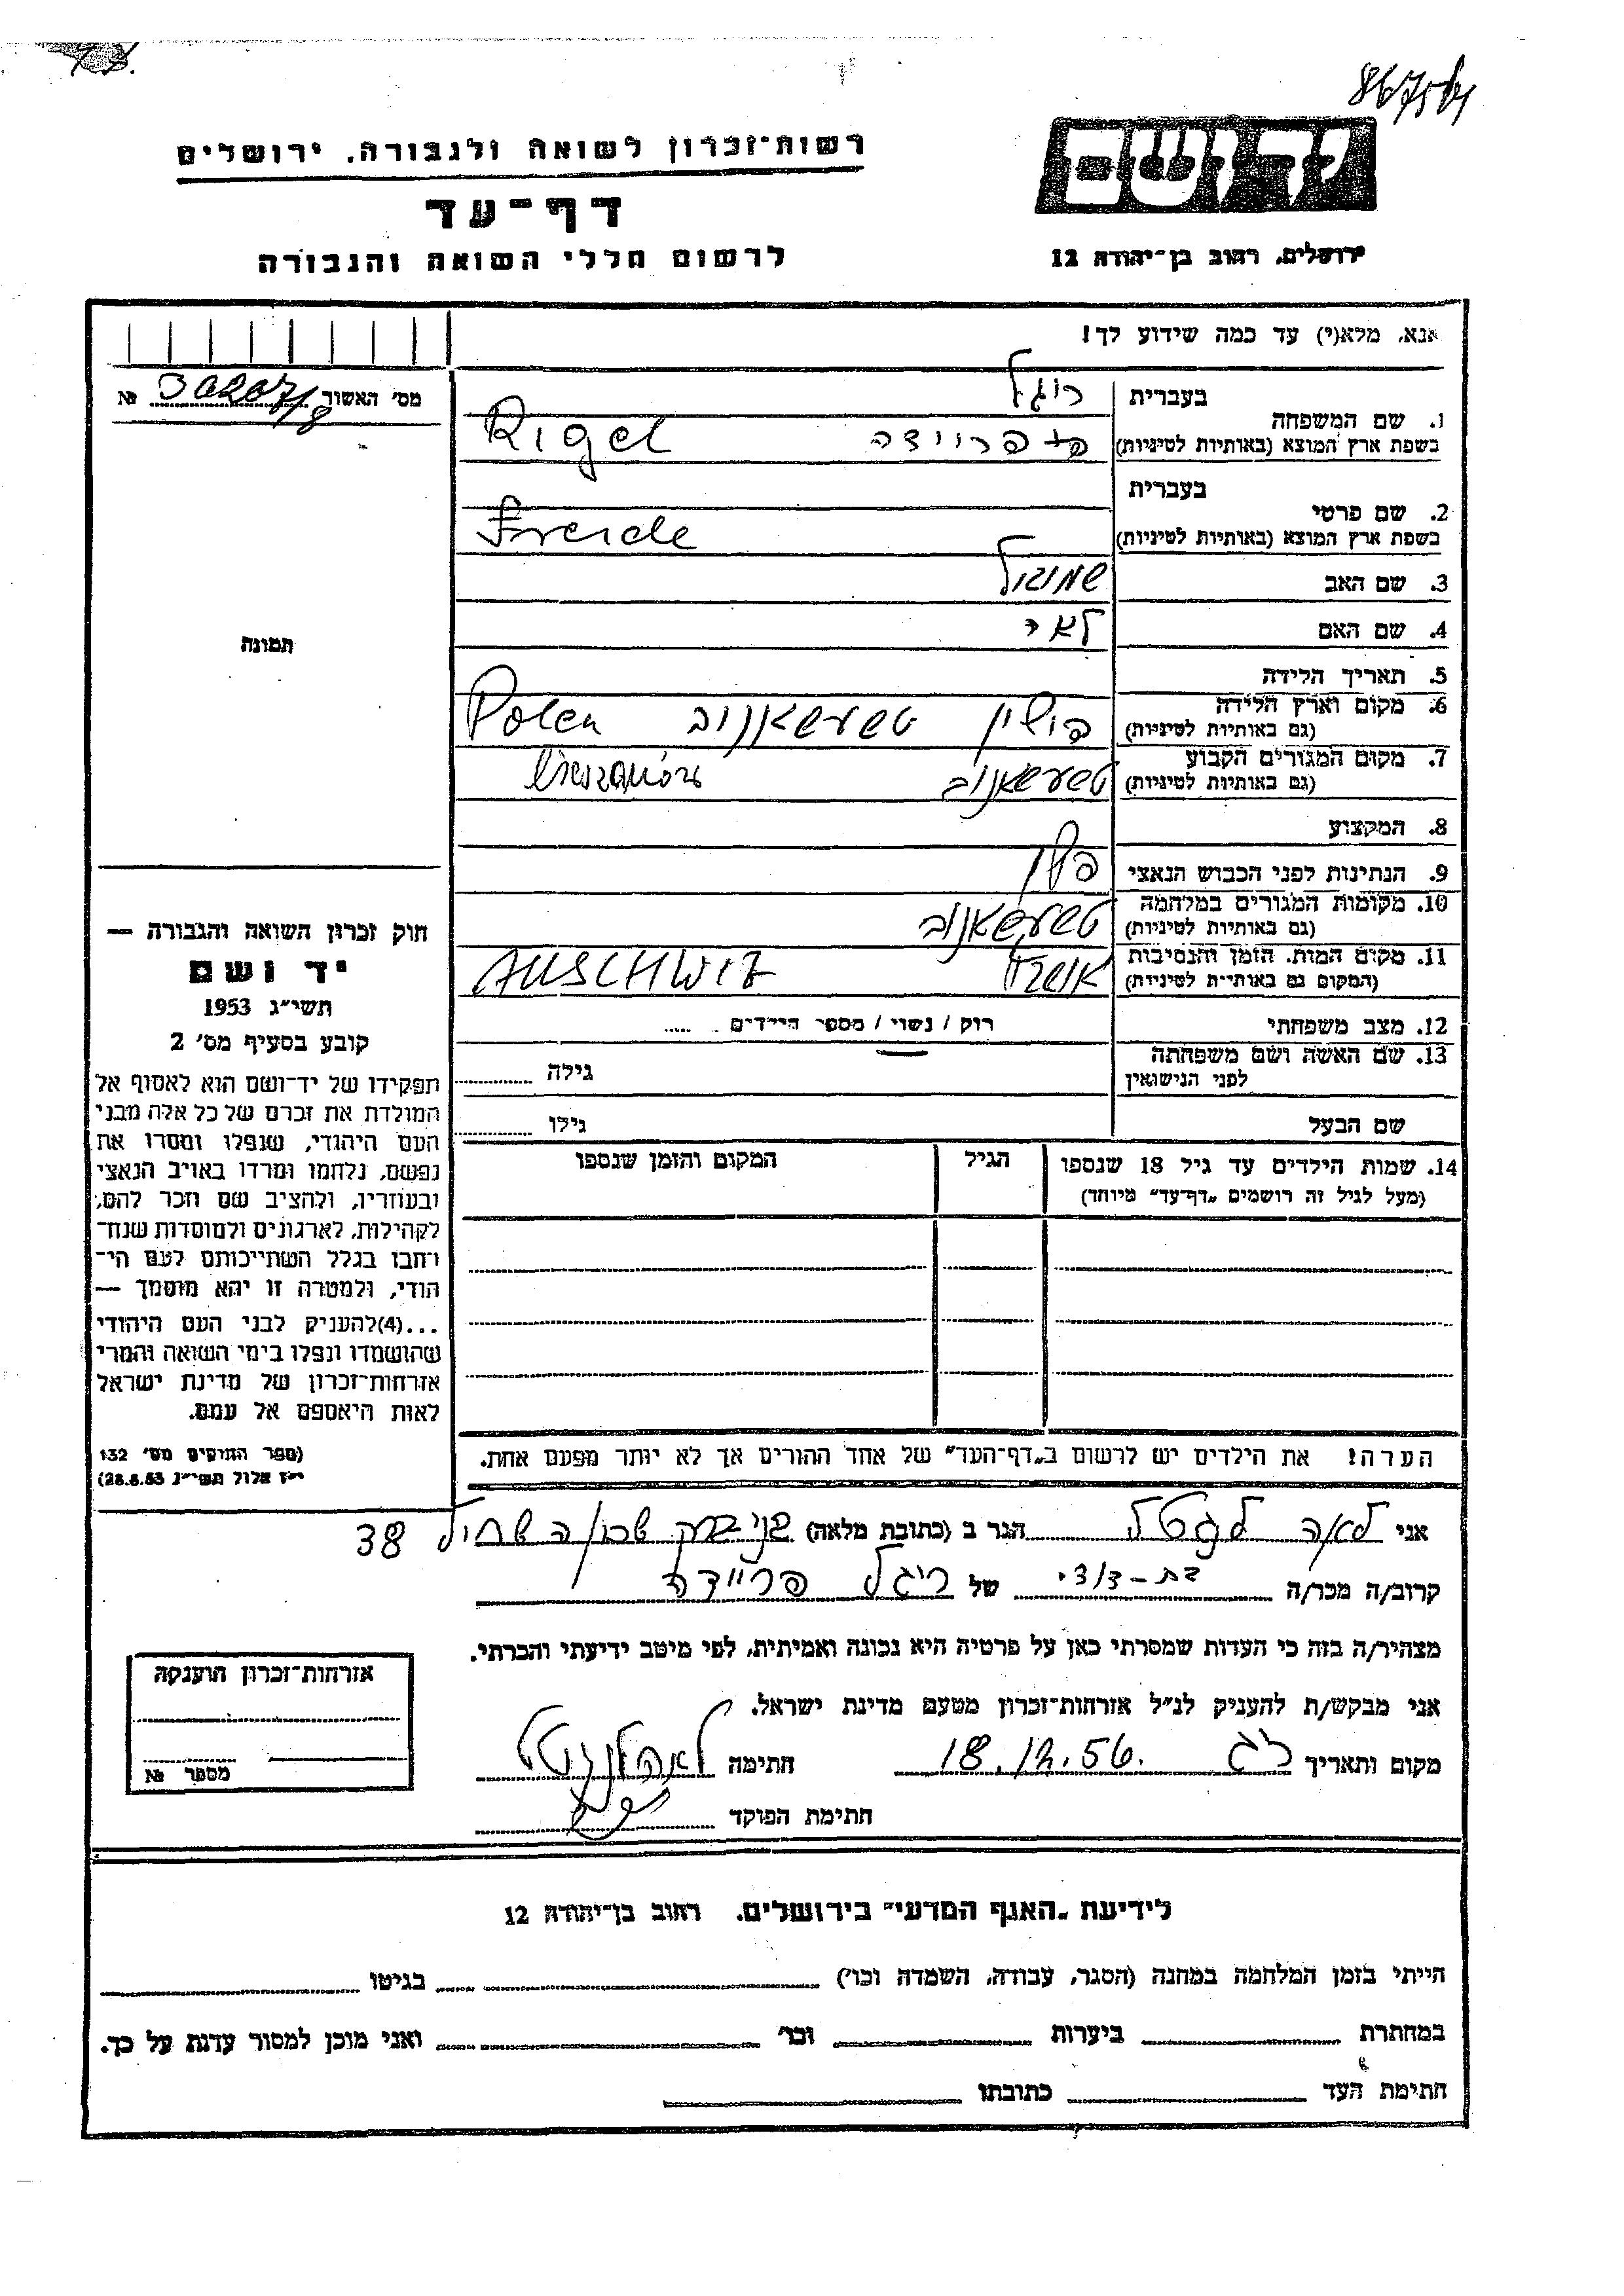 867504
רשות־זכרון לשואה ולגבורה. ירושלים
דף־עד
לרשום חללי השואה והגבורה
יד ושם
ירושלים, רחוב בן־יהודה 12
אנא, מלא(י) עד כמה שידוע לך!
מס' האשור № 30207/8
1. שם המשפחה בעברית ריגל
בשפת ארץ המוצא (באותיות לטיניות) Rigel פריידה
2. שם פרטי בעברית
בשפת ארץ המוצא (באותיות לטיניות) Freide
3. שם האב שמואל
4. שם האם
תמונה
5. תאריך הלידה
6. מקום וארץ הלידה
(גם באותיות לטיניות) פוילין טשעשאנוב Polen
7. מקום המגורים הקבוע
(גם באותיות לטיניות) טשעשאנוב
8. המקצוע
9. הנתינות לפני הכבוש הנאצי
10. מקומות המגורים במלחמה
(גם באותיות לטיניות) טשעשאנוב
11. מקום המות, הזמן והנסיבות
(המקום גם באותיות לטיניות) AUSCHWIZ
12. מצב משפחתי רוק / נשוי / מספר הילדים
13. שם האשה ושם משפחתה
לפני הנישואין גילה
שם הבעל גילו
14. שמות הילדים עד גיל 18 שנספו הגיל המקום והזמן שנספו
(מעל לגיל זה רושמים „דף־עד" מיוחד)
חוק זכרון השואה והגבורה —
יד ושם
תשי"ג 1953
קובע בסעיף מס' 2
תפקידו של יד־ושם הוא לאסוף אל
המולדת את זכרם של כל אלה מבני
העם היהודי, שנפלו ומסרו את
נפשם, נלחמו ומרדו באויב הנאצי
ובעוזריו, ולהציב שם וזכר להם,
לקהילות, לארגונים ולמוסדות שנח־
רחבו בגלל השתייכותם לעם הי־
הודי, ולמטרה זו יהא מוסמך —
...(4)להעניק לבני העם היהודי
שהושמדו ונפלו בימי השואה והמרי
אזרחות־זכרון של מדינת ישראל
לאות היאספם אל עמם.
(ספר החוקים מס' 132
י"ז אלול תשי"ג 28.8.53)
הערה! את הילדים יש לרשום ב„דף־העד" של אחד ההורים אך לא יותר מפעם אחת.
אני לאה הגר ב (כתובת מלאה) בני ברק 38
קרוב/ה מכר/ה של ריגל פריידה
מצהיר/ה בזה כי העדות שמסרתי כאן על פרטיה היא נכונה ואמיתית, לפי מיטב ידיעתי והכרתי.
אני מבקש/ת להעניק לנ"ל אזרחות־זכרון מטעם מדינת ישראל.
מקום ותאריך 18.12.56. חתימה
חתימת הפוקד
אזרחות־זכרון הוענקה
מספר №
לידיעת „האגף המדעי" בירושלים. רחוב בן־יהודה 12
הייתי בזמן המלחמה במחנה (הסגר, עבודה, השמדה וכו') בגיטו
במחתרת ביערות וכו' ואני מוכן למסור עדות על כך.
חתימת העד כתובתו